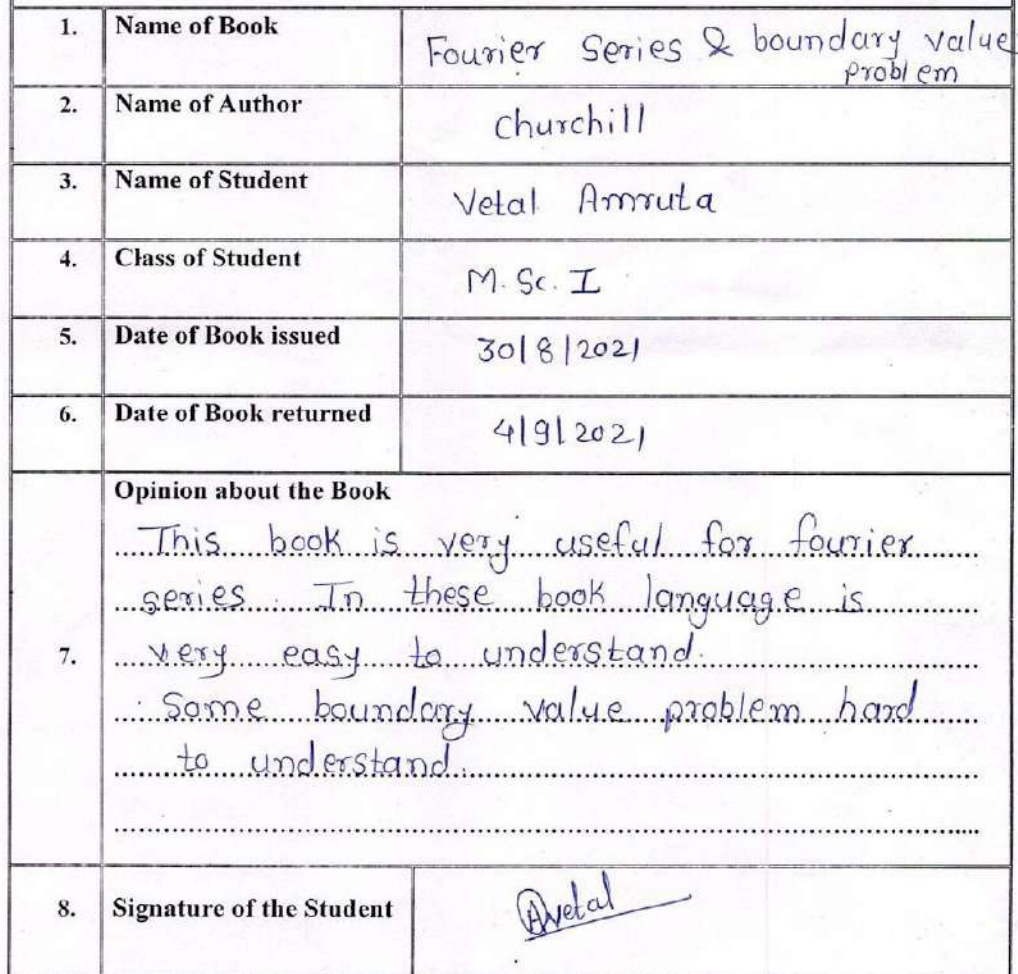 1. Name of Book Fourier Series & boundary value
problem
2. Name of Author Churchill
3. Name of Student Vetal Amruta
4. Class of Student M. Sc. I
5. Date of Book issued 30/8/2021
6. Date of Book returned 4/9/2021
Opinion about the Book
This book is very useful for fourier
series. In these book language is
7. very easy to understand.
Some boundary value problem hard
to understand.
8. Signature of the Student Avetal